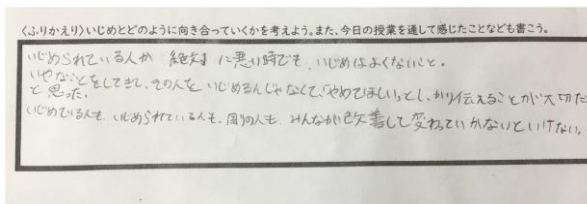 〈ふりかえり〉いじめとどのように向き合っていくかを考えよう。また、今日の授業を通して感じたことなども書こう。
いじめられている人が 絶対 に悪い時でも、いじめはよくないこと。
いやなことをしてきて、その人を いじめるんじゃなくて、「やめてほしい」としっかり伝えることが大切だ
と思った。
いじめている人も、いじめられている人も、周りの人も、みんなが改善して変わっていかないといけない。